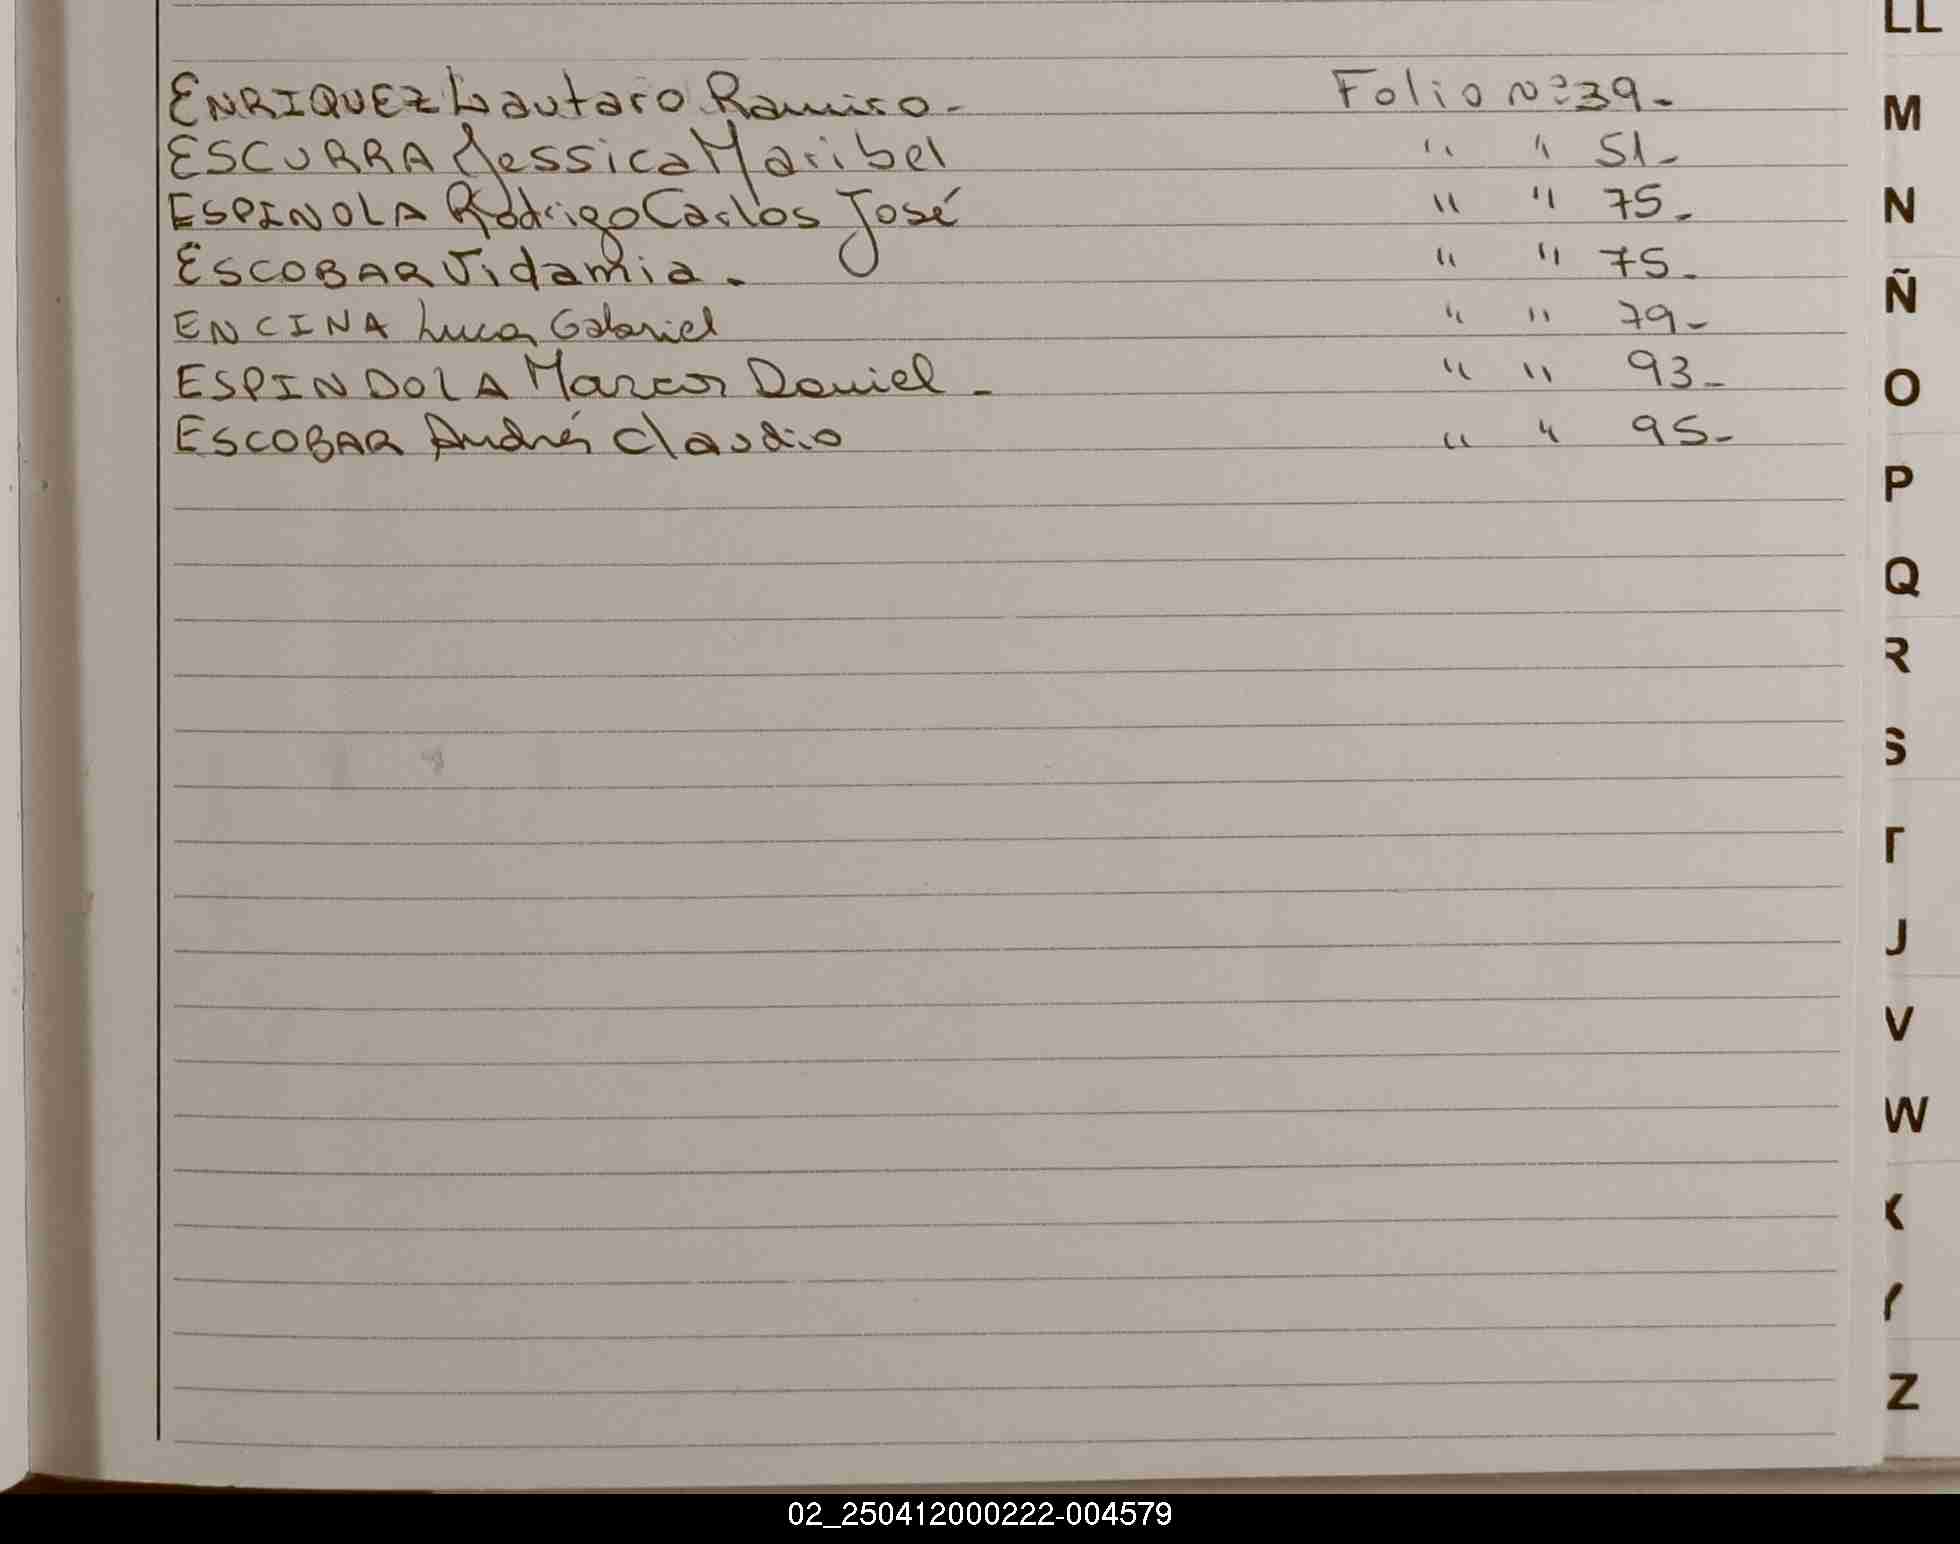 LL
ENRIQUEZ Lautaro Ramiro- Folio nº 39-
M
ESCURRA Jessica Maribel " " 51-
ESPINOLA Rodrigo Carlos José " " 75-
N
ESCOBAR Vidamia. " " 75-
Ñ
ENCINA Luca Gabriel " " 79-
ESPINDOLA Marcos Daniel- " " 93-
O
ESCOBAR Andrés Claudio " " 95-
P
Q
R
S
T
J
V
W
K
Y
Z
02_250412000222-004579